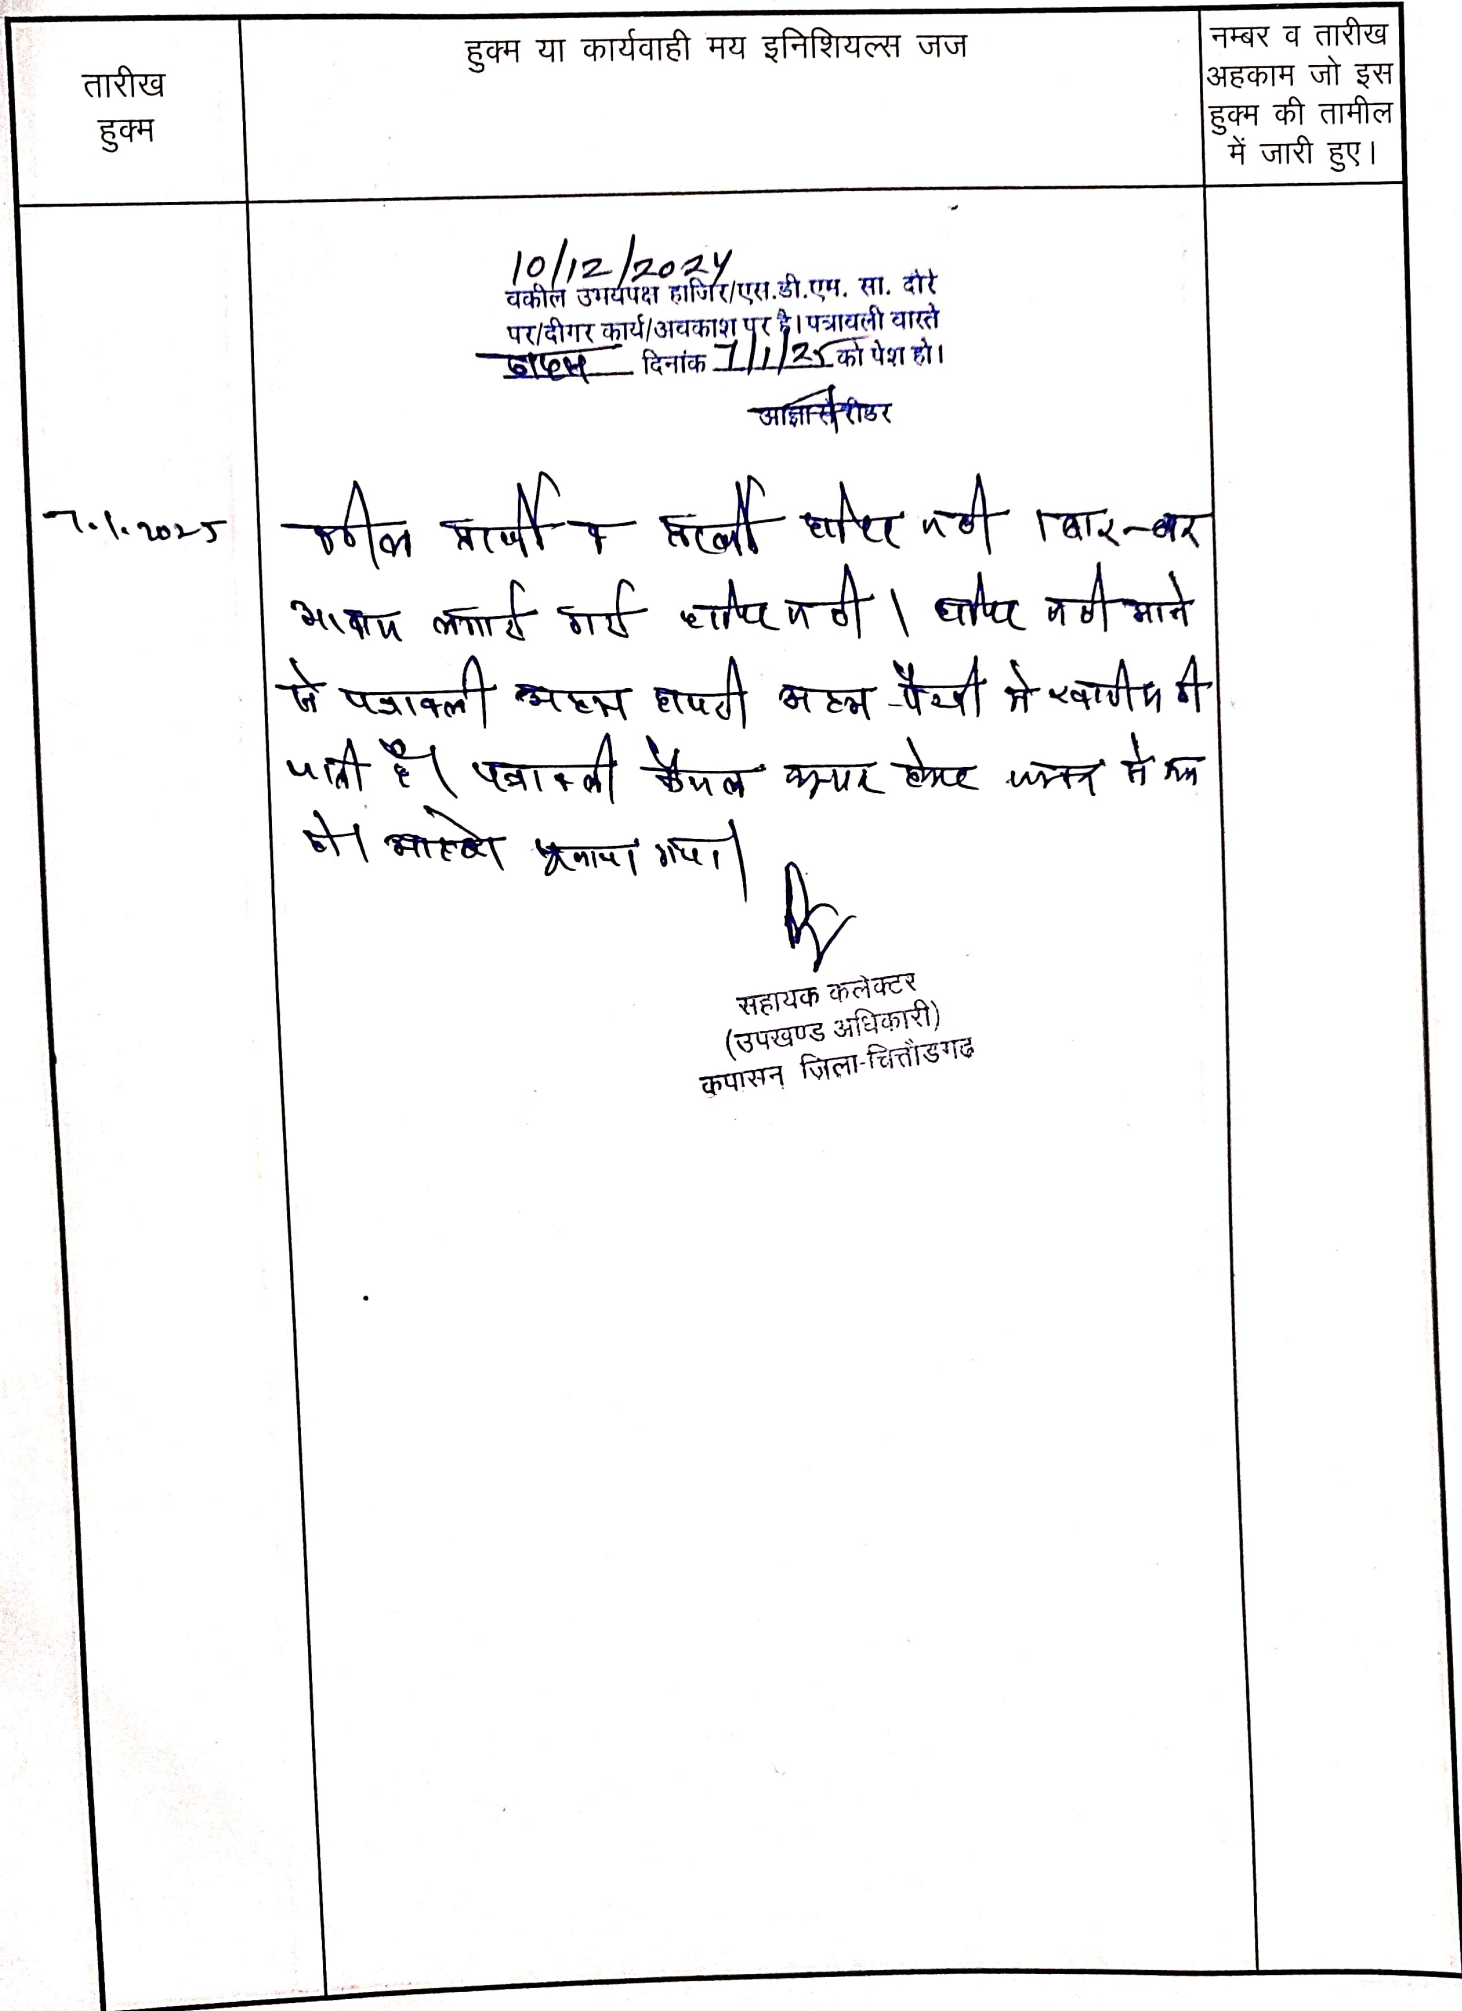 तारीख
हुक्म
हुक्म या कार्यवाही मय इनिशियल्स जज
नम्बर व तारीख
अहकाम जो इस
हुक्म की तामील
में जारी हुए।
10/12/2024
वकील उभयपक्ष हाजिर/एस.डी.एम. सा. दौरे
पर/दीगर कार्य/अवकाश पर है। पत्रावली वास्ते
दिनांक 7/1/25 को पेश हो।
आज्ञा से रीडर
7.1.2025
वकील प्रार्थी व प्रार्थी हाजिर नही । बार-बार
आवाज लगाई गई हाजिर नही । हाजिर नही आने
से पत्रावली अदम हाजरी अदम पैरवी मे खारीज की
जाती है। पत्रावली फैसल शुमार होकर नम्बर से कम
हो। आदेश सुनाया गया।
सहायक कलेक्टर
(उपखण्ड अधिकारी)
कपासन जिला-चित्तौडगढ